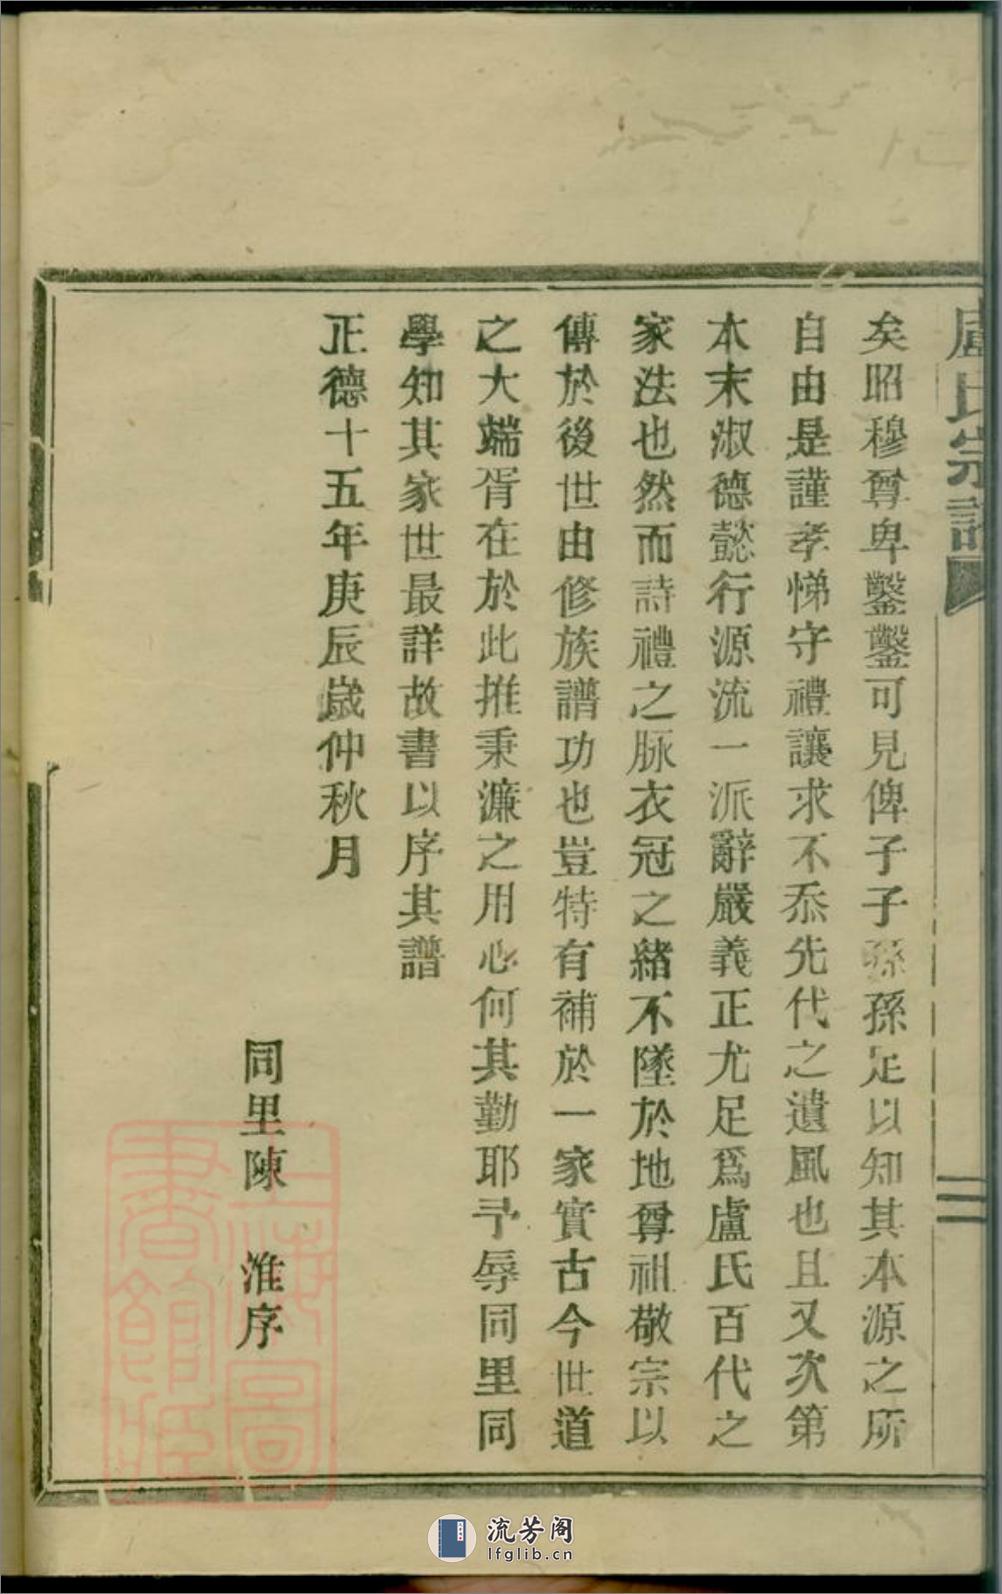 盧氏宗譜
二
矣昭穆尊卑鑿鑿可見俾子子孫孫足以知其本源之所
自由是謹孝悌守禮讓求不忝先代之遺風也且又次第
本末淑德懿行源流一派辭嚴義正尤足爲盧氏百代之
家法也然而詩禮之脉衣冠之緒不墜於地尊祖敬宗以
傳於後世由修族譜功也豈特有補於一家實古今世道
之大端胥在於此推秉濂之用心何其勤耶予辱同里同
學知其家世最詳故書以序其譜
正德十五年庚辰歲仲秋月
同里陳 淮序
上海圖
書館藏
流芳阁
lfglib.cn